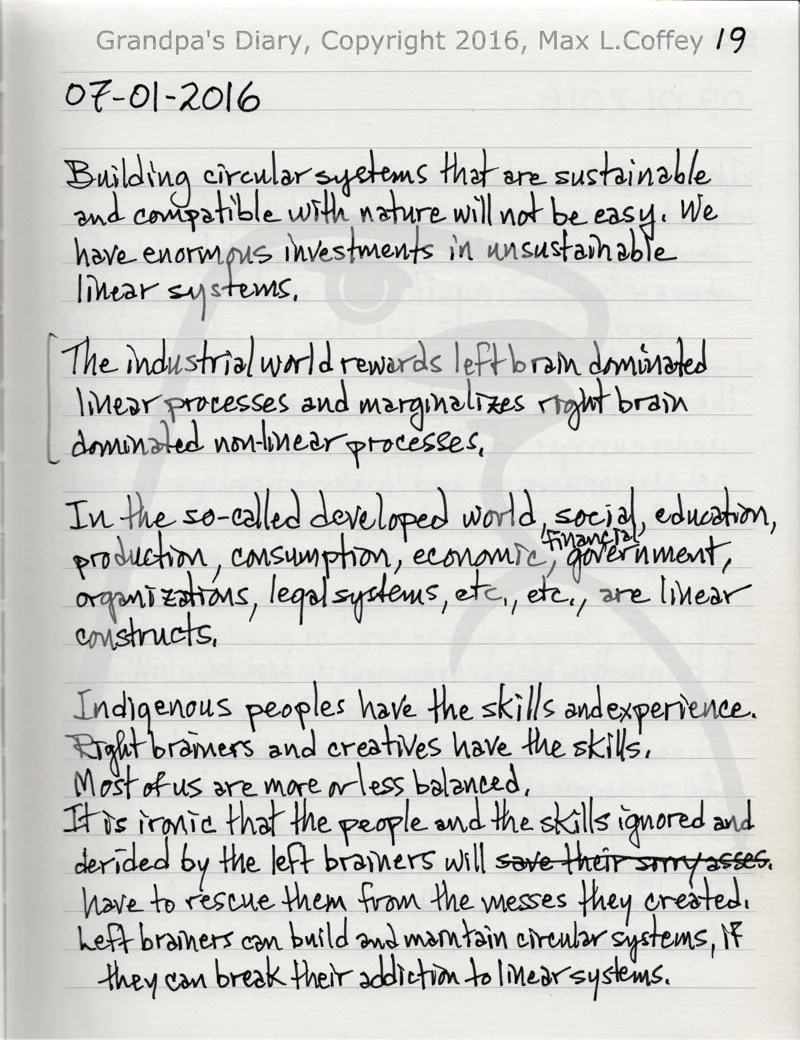 Grandpa's Diary, Copyright 2016, Max L.Coffey 19
07-01-2016
Building circular systems that are sustainable
and compatible with nature will not be easy. We
have enormous investments in unsustainable
linear systems.
The industrial world rewards left brain dominated
linear processes and marginalizes right brain
dominated non-linear processes.
In the so-called developed world, social, education,
financial
production, consumption, economic, government,
organizations, legal systems, etc., etc., are linear
constructs.
Indigenous peoples have the skills and experience.
Right brainers and creatives have the skills.
Most of us are more or less balanced.
It is ironic that the people and the skills ignored and
derided by the left brainers will save their sorry asses.
have to rescue them from the messes they created.
Left brainers can build and maintain circular systems, if
they can break their addiction to linear systems.